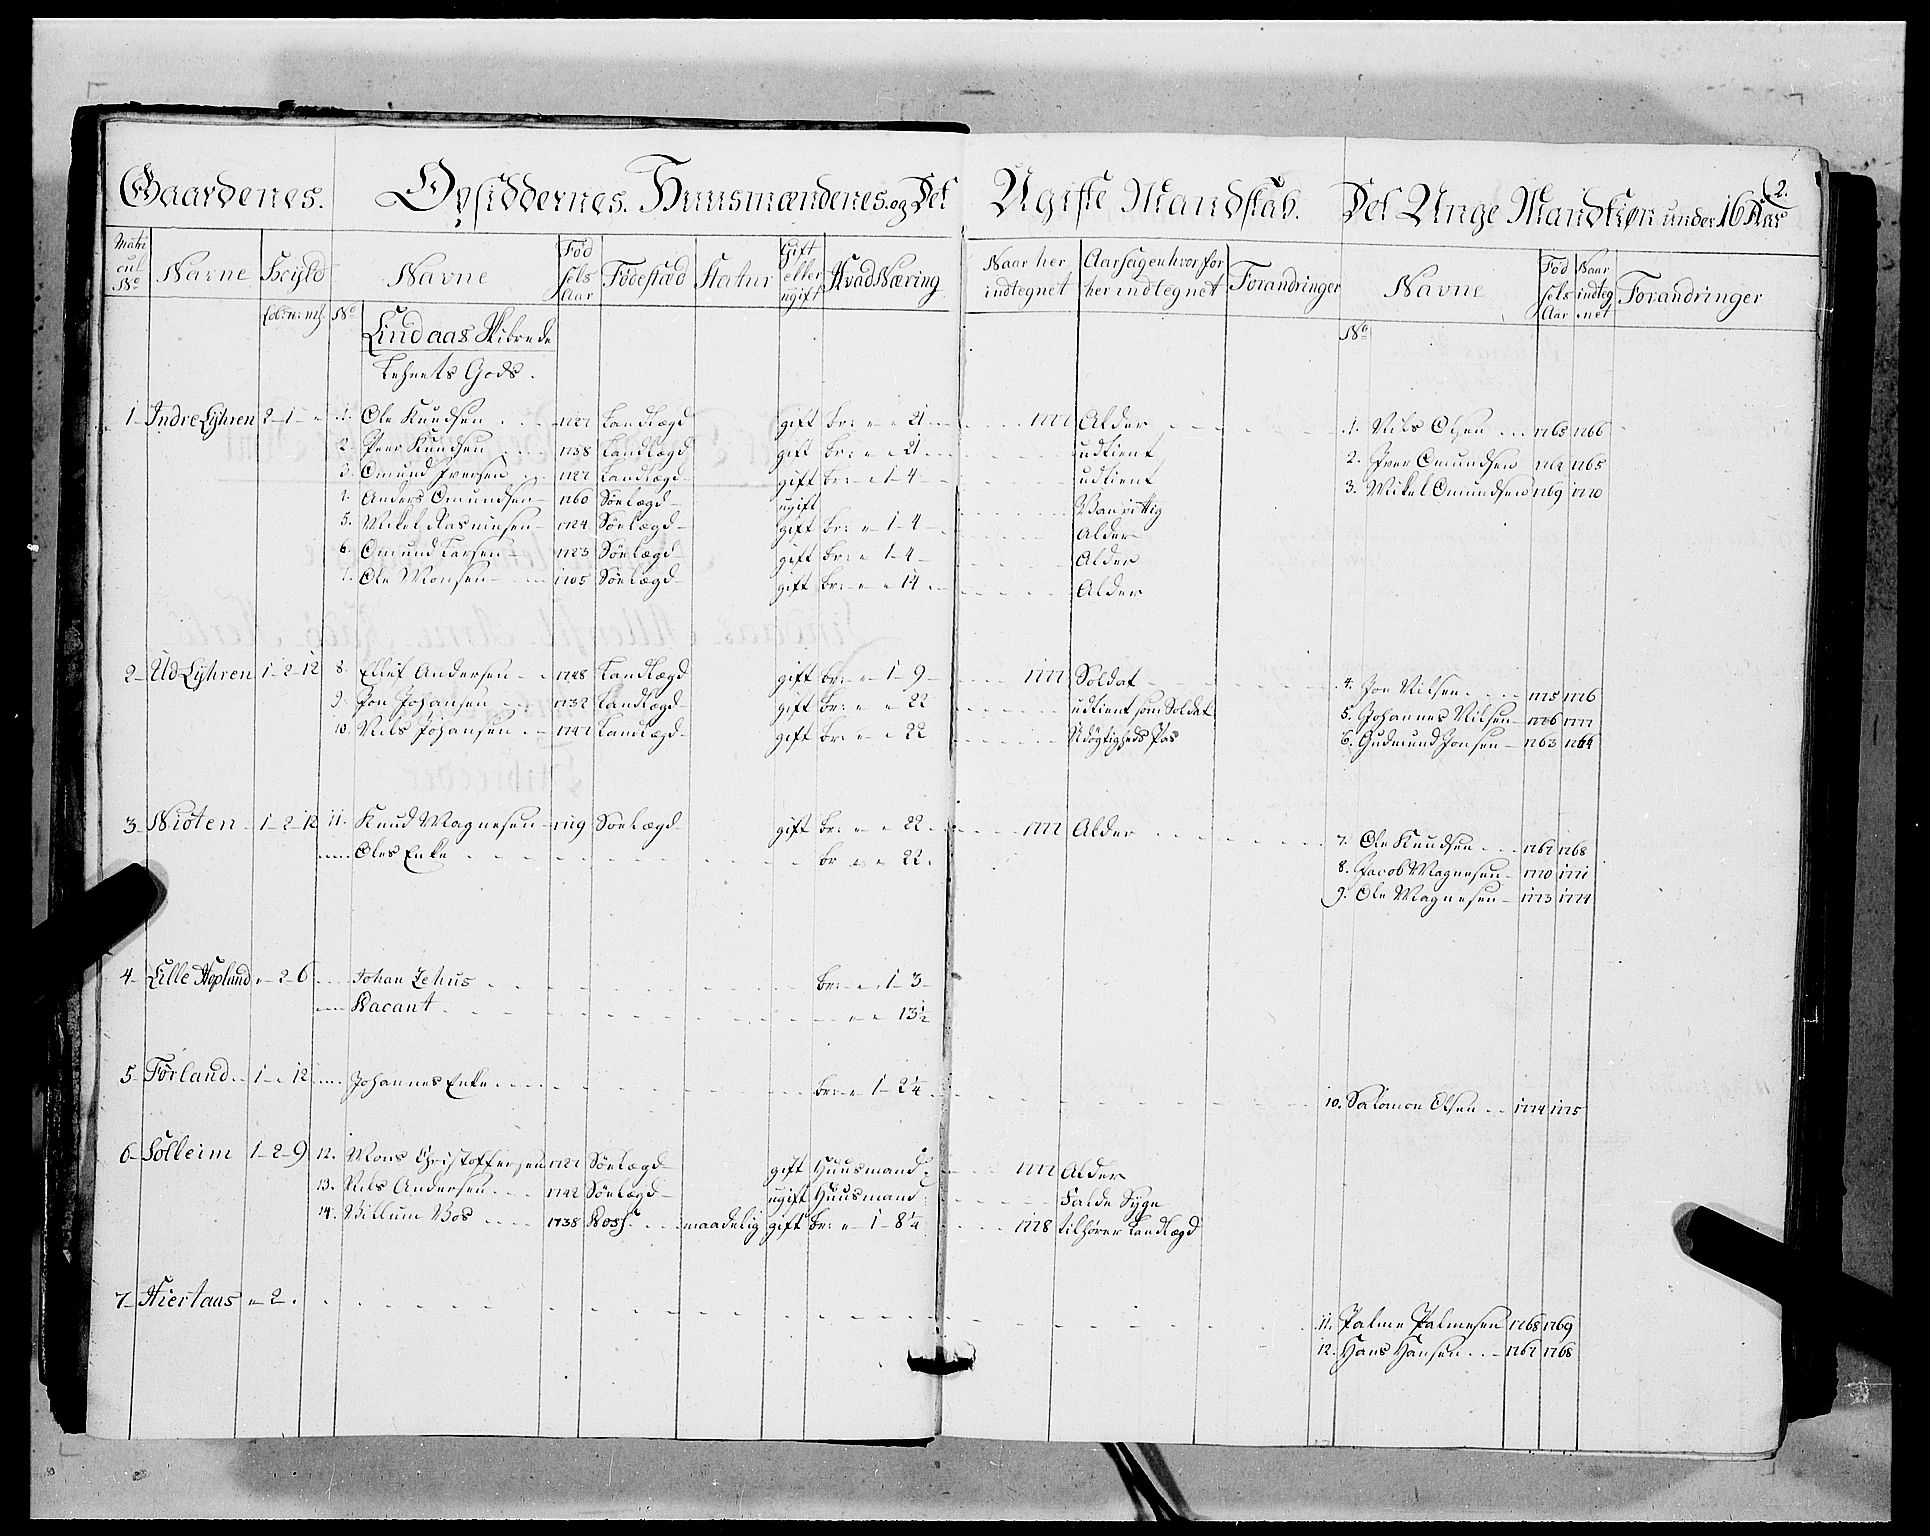 2.
Gaardenes. Opsiddernes. Huusmændenes. og Det Ugifte Mandskab. Det Unge Mandkiøn under 16 Aar
Matr cul No Navne Skyld Navne Fød sels Aar Fødestæd Statur Gift eller ugift Hvad Næring Naar her indtegnet Aarsagen hvorfor her indtegnet Forandringer Navne Fød sels Aar Naar indteg net Forandringer
No Lindaas Skibrede No
Lehnets Gods.
1 Indre Lyhren 2 - 1 - 1. Ole Knudsen 1727 Landlægd gift br: 21 1777 Alder 1. Nils Olsen 1765 1766
2. Peer Knudsen 1738 Landlægd gift br: 21 udtient 2. Iver Omundsen 1764 1765
3. Omund Iversen 1727 Landlægd gift br: 1-4 udtient 3. Mikel Omundsen 1769 1770
4. Anders Omundsen 1760 Søelægd ugift Vanvittig
5. Mikel Rasmusen 1724 Søelægd gift br: 1-4 Alder
6. Omund Larsen 1723 Søelægd gift br: 1-4 Alder
7. Ole Monsen 1705 Søelægd gift br: 14 Alder
2 Ud Lyhren 1-2-12 8. Ellef Andersen 1748 Landlægd gift br: 1-9 1777 Soldat 4. Jon Nilsen 1775 1776
9. Jon Johansen 1732 Landlægd gift br: 22 udtient som Soldat 5. Johannes Nilsen 1776 1777
10. Nils Johansen 1747 Landlægd gift br: 22 Udøgtigheds Pas 6. Gudmund Jonsen 1763 1764
3 Niøten 1-2-12 11. Knud Magnesen 1719 Søelægd gift br: 22 1777 Alder 7. Ole Knudsen 1767 1768
Oles Enke br: 22. 8. Jacob Magnesen 1770 1771
9. Ole Magnesen 1773 1774
4 Lille Hoplund 2-6 Johan Zehus br: 1-3
Vacant 13½
5 Førland 1 - 12 Johannes Enke br: 1-2¼ 10. Salomon Olsen 1774 1775
6 Solleim 1-2-9 12. Mons Christoffersen 1727 Søelægd gift Huusmand 1777 Alder
13. Nils Andersen 1742 Søelægd ugift Huusmand Falde Syge
14. Villum Vos 1738 Voss maadelig gift br: 1-8¼ 1778 tilhører Landlægd
7 Hiertaas 2 11. Palme Palmesen 1768 1769
12. Hans Hansen 1767 1768